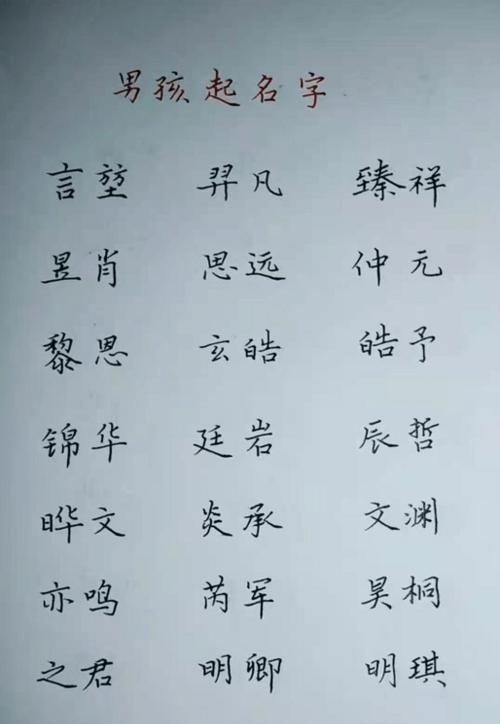 男孩起名字
言堃 羿凡 臻祥
昱肖 思远 仲元
黎恩 玄皓 皓予
锦华 廷岩 辰哲
晔文 炎承 文渊
亦鸣 芮军 昊桐
之君 明卿 明琪